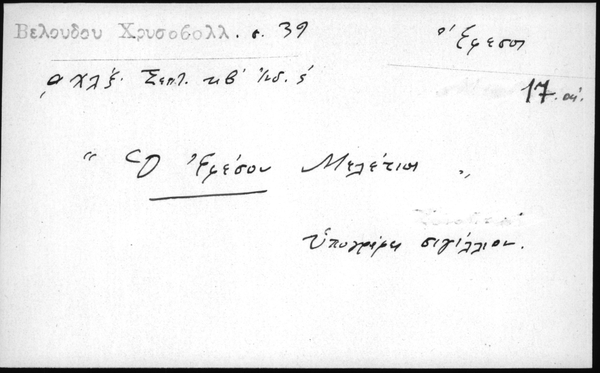 Βελουδου Χρυσοβολλ. σ. 39
Ἔφεσος
͵αχλξ. Σεπτ. κβ' Ἰνδ. ς'
17. αἰ.
" Ὁ Ἐφέσου Μελέτιος "
Ὑπογράφει σιγίλλιον.